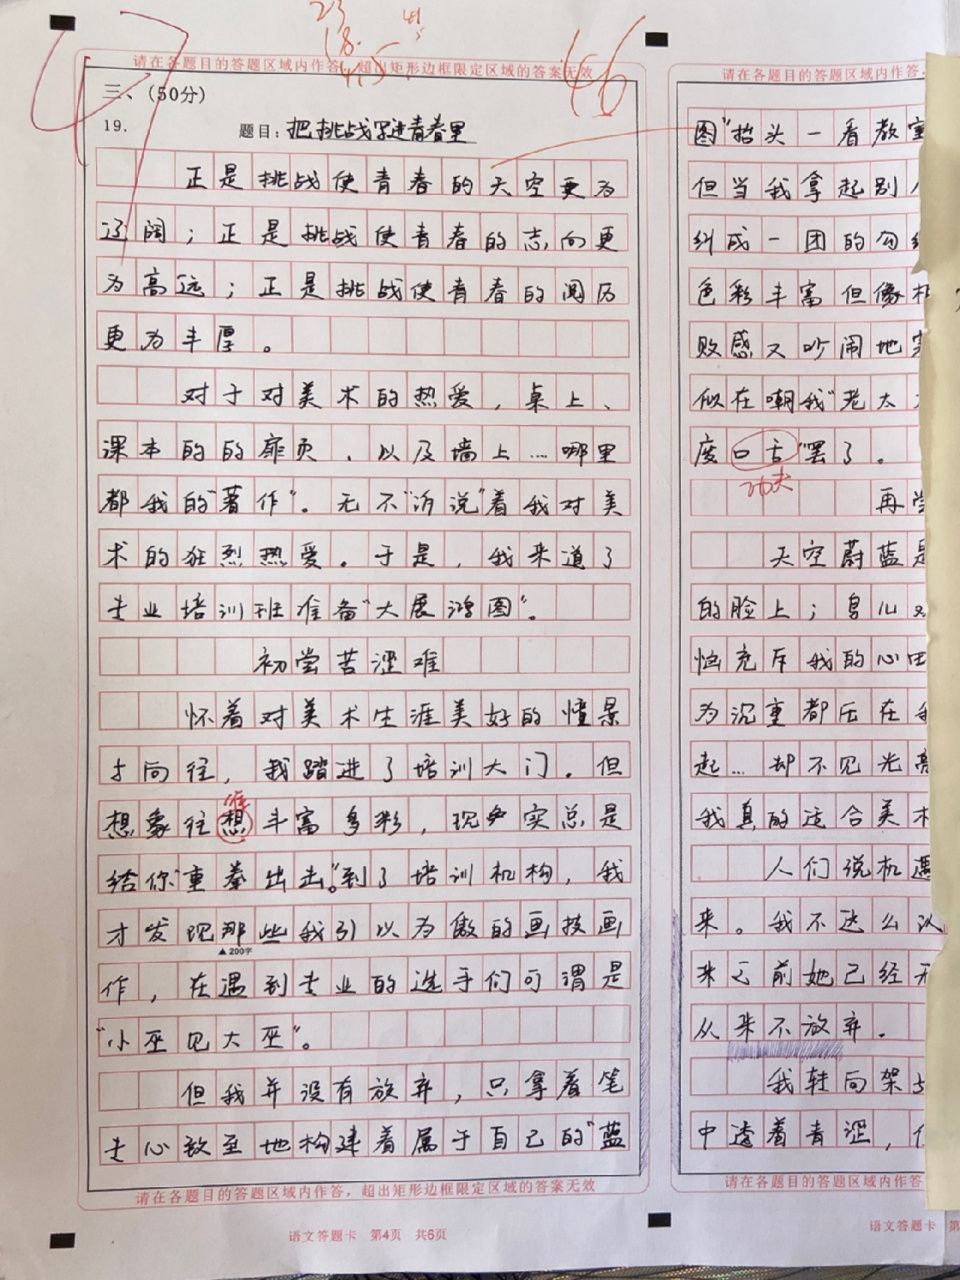 46
请在各题目的答题区域内作答，超出矩形边框限定区域的答案无效
三、（50分）
19.
题目：把挑战写进青春里
正是挑战使青春的天空更为
辽阔；正是挑战使青春的志向更
为高远；正是挑战使青春的阅历
更为丰厚。
对于对美术的热爱，桌上、
课本的的扉页、以及墙上…哪里
都我的“著作”。无不“诉说”着我对美
术的狂烈热爱。于是，我来道了
专业培训班准备“大展鸿图”。
初尝苦涩难
怀着对美术生涯美好的憧景
与向往，我踏进了培训大门。但
想象往想丰富多彩，现实总是
给你“重拳出击。”到了培训机构，我
才发现那些我引以为傲的画技画
▲200字
作，在遇到专业的选手们可谓是
“小巫见大巫”。
但我并没有放弃，只拿着笔
专心致至地构建着属于自己的“蓝
请在各题目的答题区域内作答，超出矩形边框限定区域的答案无效
语文答题卡 第4页 共6页
请在各题目的答题区域内作答，
图”抬头一看教室
但当我拿起别
纠成一团的勾
色彩丰富但像
败感又吵闹地
似在嘲我“老太
废口舌”罢了。
功夫
再尝
天空蔚蓝是
的脸上；鸟儿
恼充斥我的心田
为沉重都压在我
起…却不见光亮
我真的适合美术
人们说机遇
来。我不这么认
来之前她已经无
从来不放弃。
我转向架
中透着青涩，
请在各题目的答题区域内作
语文答题卡 第